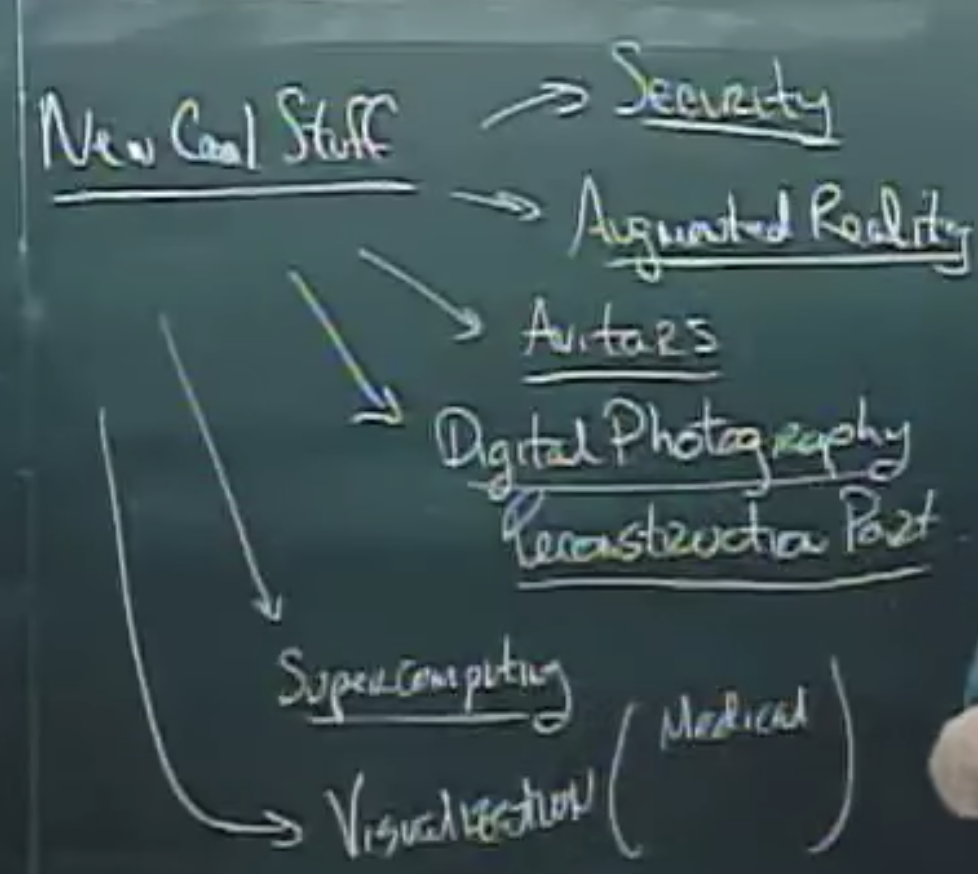 New Cool Stuff
Security
Augmented Reality
Avitars
Digital Photography
Reconstruction Part
Supercomputing
Visualization (Medical)